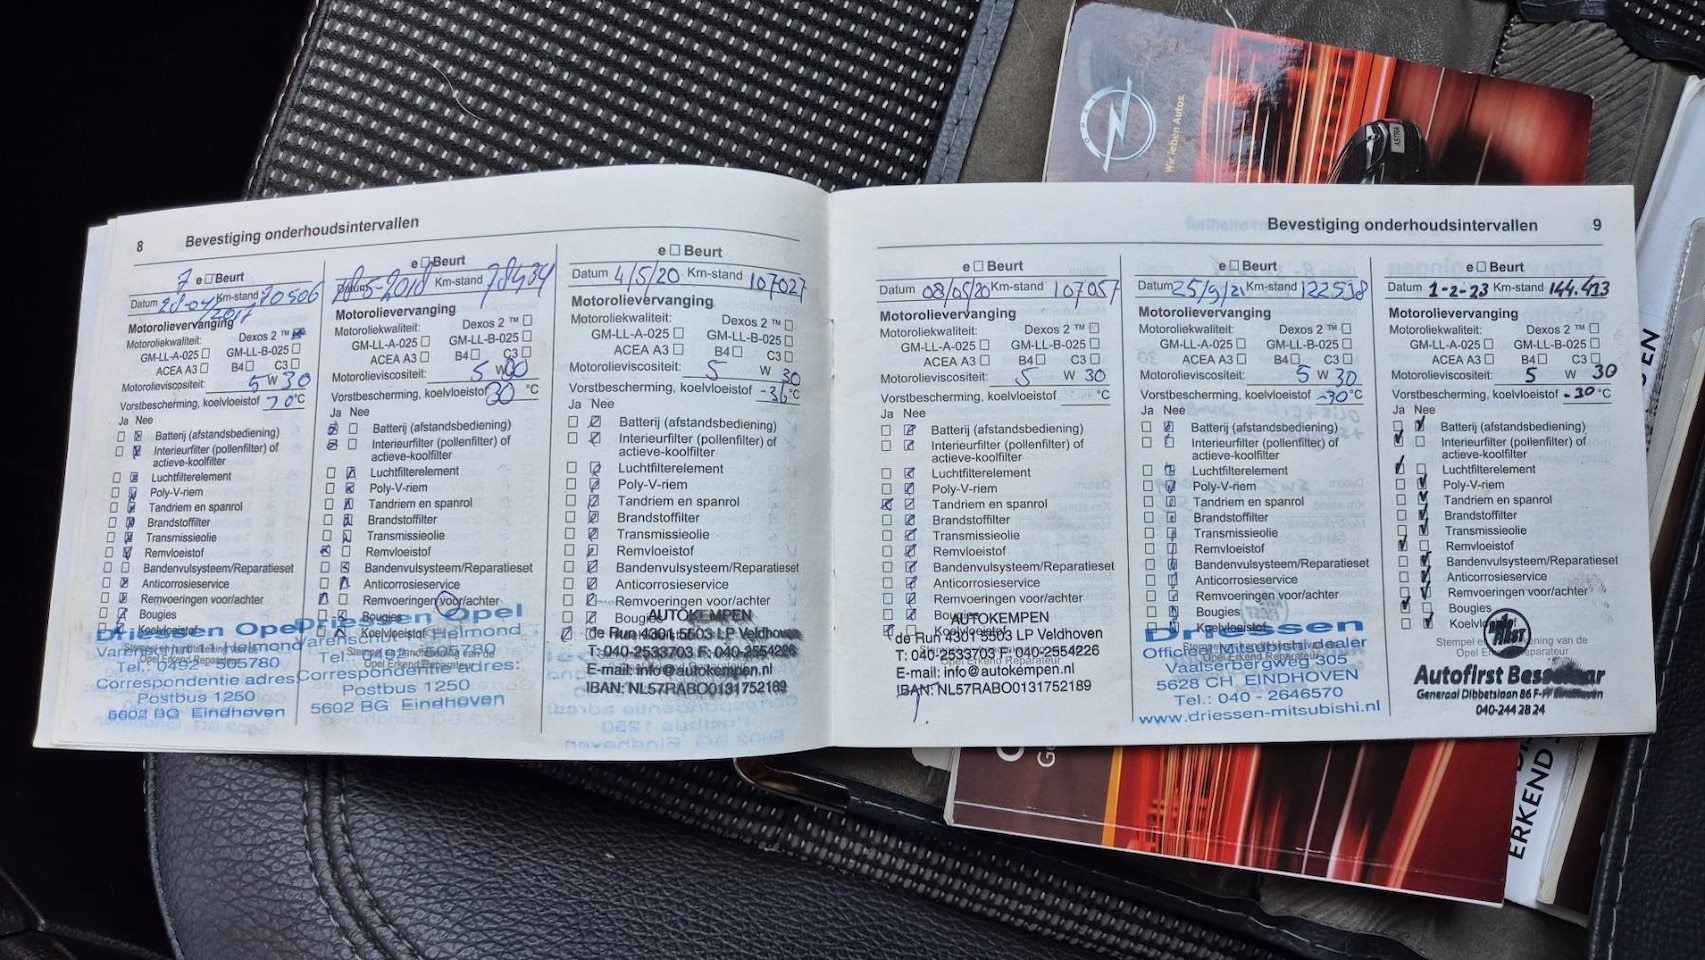 8 Bevestiging onderhoudsintervallen
7 e □ Beurt
Datum 28-04/2017 Km-stand 70506
Motorolievervanging
Motoroliekwaliteit: Dexos 2 ™
GM-LL-A-025 GM-LL-B-025
ACEA A3 B4 C3
Motorolieviscositeit: 5 W 30
Vorstbescherming, koelvloeistof °C
Ja Nee
Batterij (afstandsbediening)
Interieurfilter (pollenfilter) of
actieve-koolfilter
Luchtfilterelement
Poly-V-riem
Tandriem en spanrol
Brandstoffilter
Transmissieolie
Remvloeistof
Bandenvulsysteem/Reparatieset
Anticorrosieservice
Remvoeringen voor/achter
Bougies
Koelvloeistof
Driessen Opel
Varenschut 1 Helmond
Tel.: 0492 - 505780
Correspondentie adres:
Postbus 1250
5602 BG Eindhoven
e □ Beurt
Datum 18-5-2018 Km-stand 78434
Motorolievervanging
Motoroliekwaliteit: Dexos 2 ™
GM-LL-A-025 GM-LL-B-025
ACEA A3 B4 C3
Motorolieviscositeit: 5 W
Vorstbescherming, koelvloeistof 30 °C
Ja Nee
Batterij (afstandsbediening)
Interieurfilter (pollenfilter) of
actieve-koolfilter
Luchtfilterelement
Poly-V-riem
Tandriem en spanrol
Brandstoffilter
Transmissieolie
Remvloeistof
Bandenvulsysteem/Reparatieset
Anticorrosieservice
Remvoeringen voor/achter
Bougies
Koelvloeistof
Driessen Opel
Helmond
Tel.: 0492 - 505780
Correspondentie adres:
Postbus 1250
5602 BG Eindhoven
e □ Beurt
Datum 4/5/20 Km-stand 107027
Motorolievervanging
Motoroliekwaliteit: Dexos 2 ™
GM-LL-A-025 GM-LL-B-025
ACEA A3 B4 C3
Motorolieviscositeit: 5 W 30
Vorstbescherming, koelvloeistof -36 °C
Ja Nee
Batterij (afstandsbediening)
Interieurfilter (pollenfilter) of
actieve-koolfilter
Luchtfilterelement
Poly-V-riem
Tandriem en spanrol
Brandstoffilter
Transmissieolie
Remvloeistof
Bandenvulsysteem/Reparatieset
Anticorrosieservice
Remvoeringen voor/achter
AUTOKEMPEN
de Run 4301 5503 LP Veldhoven
T: 040-2533703 F: 040-2554226
E-mail: info@autokempen.nl
IBAN: NL57RABO0131752189
Bevestiging onderhoudsintervallen 9
e □ Beurt
Datum 08/05/20 Km-stand 107057
Motorolievervanging
Motoroliekwaliteit: Dexos 2 ™
GM-LL-A-025 GM-LL-B-025
ACEA A3 B4 C3
Motorolieviscositeit: 5 W 30
Vorstbescherming, koelvloeistof °C
Ja Nee
Batterij (afstandsbediening)
Interieurfilter (pollenfilter) of
actieve-koolfilter
Luchtfilterelement
Poly-V-riem
Tandriem en spanrol
Brandstoffilter
Transmissieolie
Remvloeistof
Bandenvulsysteem/Reparatieset
Anticorrosieservice
Remvoeringen voor/achter
Bougies
AUTOKEMPEN
de Run 4301 5503 LP Veldhoven
T: 040-2533703 F: 040-2554226
Opel Erkend Reparateur
E-mail: info@autokempen.nl
IBAN: NL57RABO0131752189
e □ Beurt
Datum 25/9/21 Km-stand 122538
Motorolievervanging
Motoroliekwaliteit: Dexos 2 ™
GM-LL-A-025 GM-LL-B-025
ACEA A3 B4 C3
Motorolieviscositeit: 5 W 30
Vorstbescherming, koelvloeistof °C
Ja Nee
Batterij (afstandsbediening)
Interieurfilter (pollenfilter) of
actieve-koolfilter
Luchtfilterelement
Poly-V-riem
Tandriem en spanrol
Brandstoffilter
Transmissieolie
Remvloeistof
Bandenvulsysteem/Reparatieset
Anticorrosieservice
Remvoeringen voor/achter
Bougies
Koelvloeistof
Driessen
Officieel Mitsubishi dealer
Vaalserbergweg 305
5628 CH EINDHOVEN
Tel.: 040 - 2646570
www.driessen-mitsubishi.nl
e □ Beurt
Datum 1-2-23 Km-stand 144.413
Motorolievervanging
Motoroliekwaliteit: Dexos 2 ™
GM-LL-A-025 GM-LL-B-025
ACEA A3 B4 C3
Motorolieviscositeit: 5 W 30
Vorstbescherming, koelvloeistof -30 °C
Ja Nee
Batterij (afstandsbediening)
Interieurfilter (pollenfilter) of
actieve-koolfilter
Luchtfilterelement
Poly-V-riem
Tandriem en spanrol
Brandstoffilter
Transmissieolie
Remvloeistof
Bandenvulsysteem/Reparatieset
Anticorrosieservice
Remvoeringen voor/achter
Bougies
Koelvloeistof
Opel Erkend Reparateur
Autofirst
Generaal Dibbetslaan 86 Eindhoven
040-244 28 24
OPEL
Wir leben Autos.
ASTRA
ERKEND